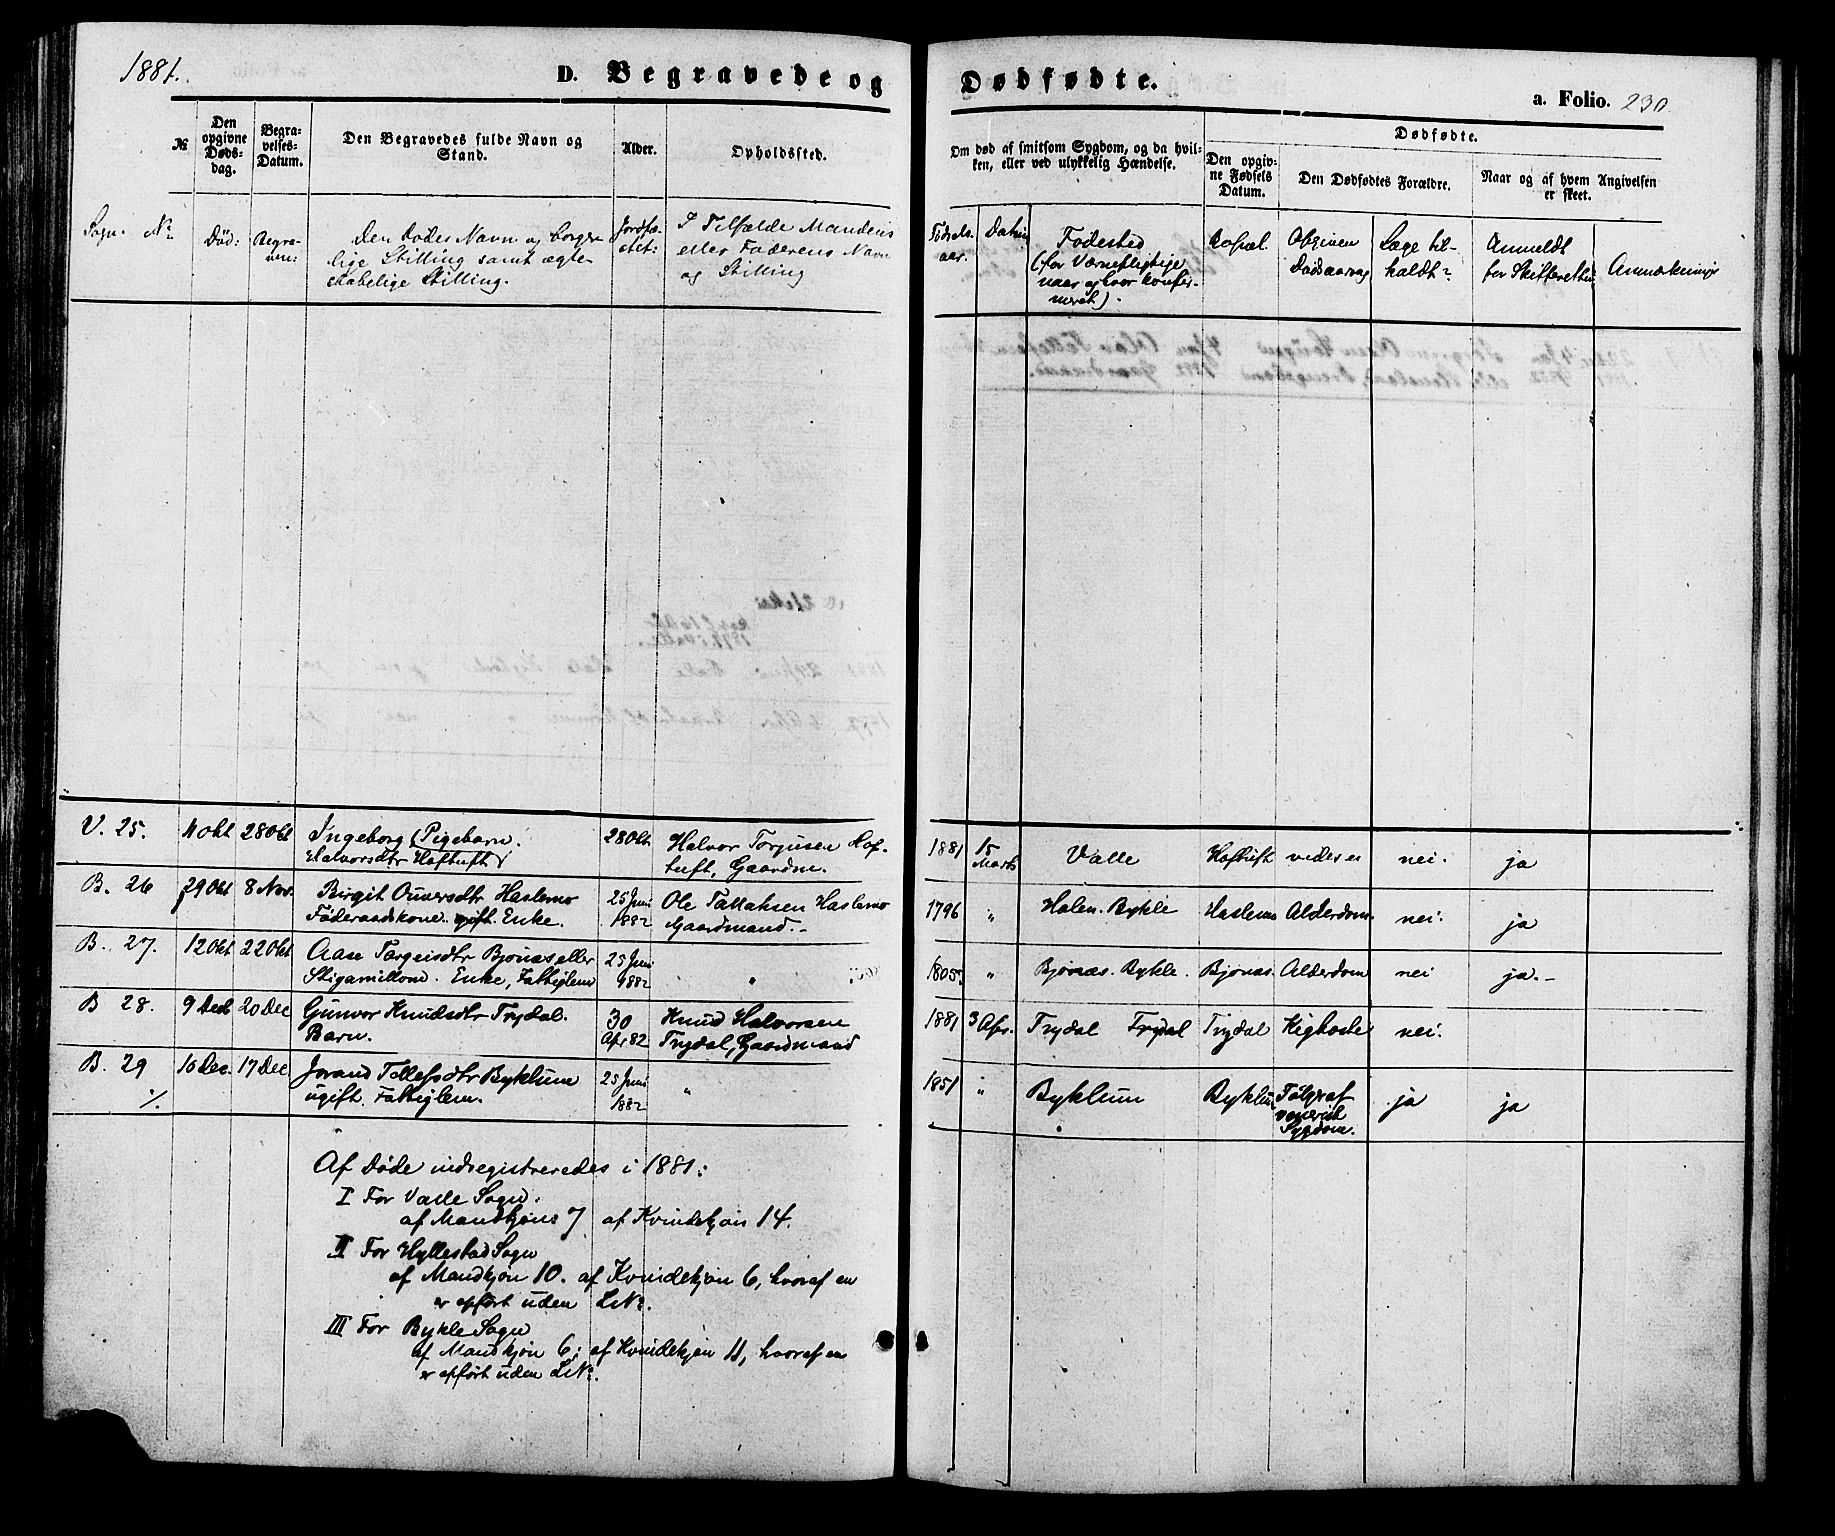 1881.
D. Begravede og Dødfødte.
a. Folio. 230.
№
Den opgivne Døds-dag.
Begra-velses-Datum.
Den Begravedes fulde Navn og Stand.
Alder.
Opholdssted.
Om død af smitsom Sygdom, og da hvil-
ken, eller ved ulykkelig Hændelse.
Dødfødte.
Den opgiv-ne Fødsels Datum.
Den Dødfødtes Forældre.
Naar og af hvem Angivelsen er skeet.
Sogn. No
Død:
Begra-ven:
Den Dødes Navn og borger-
lige Stilling samt ægte-
skabelige Stilling.
Jordfæ-stet:
I Tilfælde Mandens
eller Faderens Navn
og Stilling
Fødsels-aar.
Datum
Fødested
(for Værnepligtige
naar og hvor konfir-
meret).
Bopæl.
Opgiven Dødsaarsag
Læge til-kaldt?
Anmeldt for Skifteretten
Anmærkninger
V. 25. 4 Okt 28 Okt Ingeborg (Pigebarn. 28 Okt Halvor Torjusen Hof- 1881 15 Marts Valle Hoftuft vides ei nei. ja
Halvorsdtr Hoftuft) tuft, Gaardm.
B. 26 29 Okt 8 Nov. Birgit Ouversdtr Haslemo 25 Juni Ole Tallaksen Haslemo 1796 " Holen. Bykle Haslemo Alderdom. nei. ja
Føderaadskone. gift. Enke. 1882 Gaardmand.-
B. 27. 12 Okt 22 Okt Aase Targeisdtr Bjønaas eller 25 Juni " 1805 " Bjønaas. Bykle. Bjønaas Alderdom nei ja.-
Stigamillom. Enke, Fattiglem 1882
B 28. 9 Dec 20 Dec Gunvor Knudsdtr Trydal. 30 Knud Halvorsen 1881 3 Apr. Trydal Trydal Trydal Kighoste nei.
Barn. Apr 82 Trydal, Gaardmand
B. 29 10 Dec. 17 Dec. Jorand Tellefsdtr Byklum 25 Juni " 1851 " Byklum Byklum Følg af venerisk Sygdom. ja ja
ugift. Fattiglem. 1882
Af Døde indregistreredes i 1881:
I For Valle Sogn.
af Mandkjøn: 7 af Kvindekjøn 14.
II For Hyllestad Sogn
af Mandkjøn 10. af Kvindekjøn 6, hvoraf en
er opført uden L№.
III For Bykle Sogn
af Mandkjøn 6; af Kvindekjøn 11, hvoraf en
er opført uden L№.